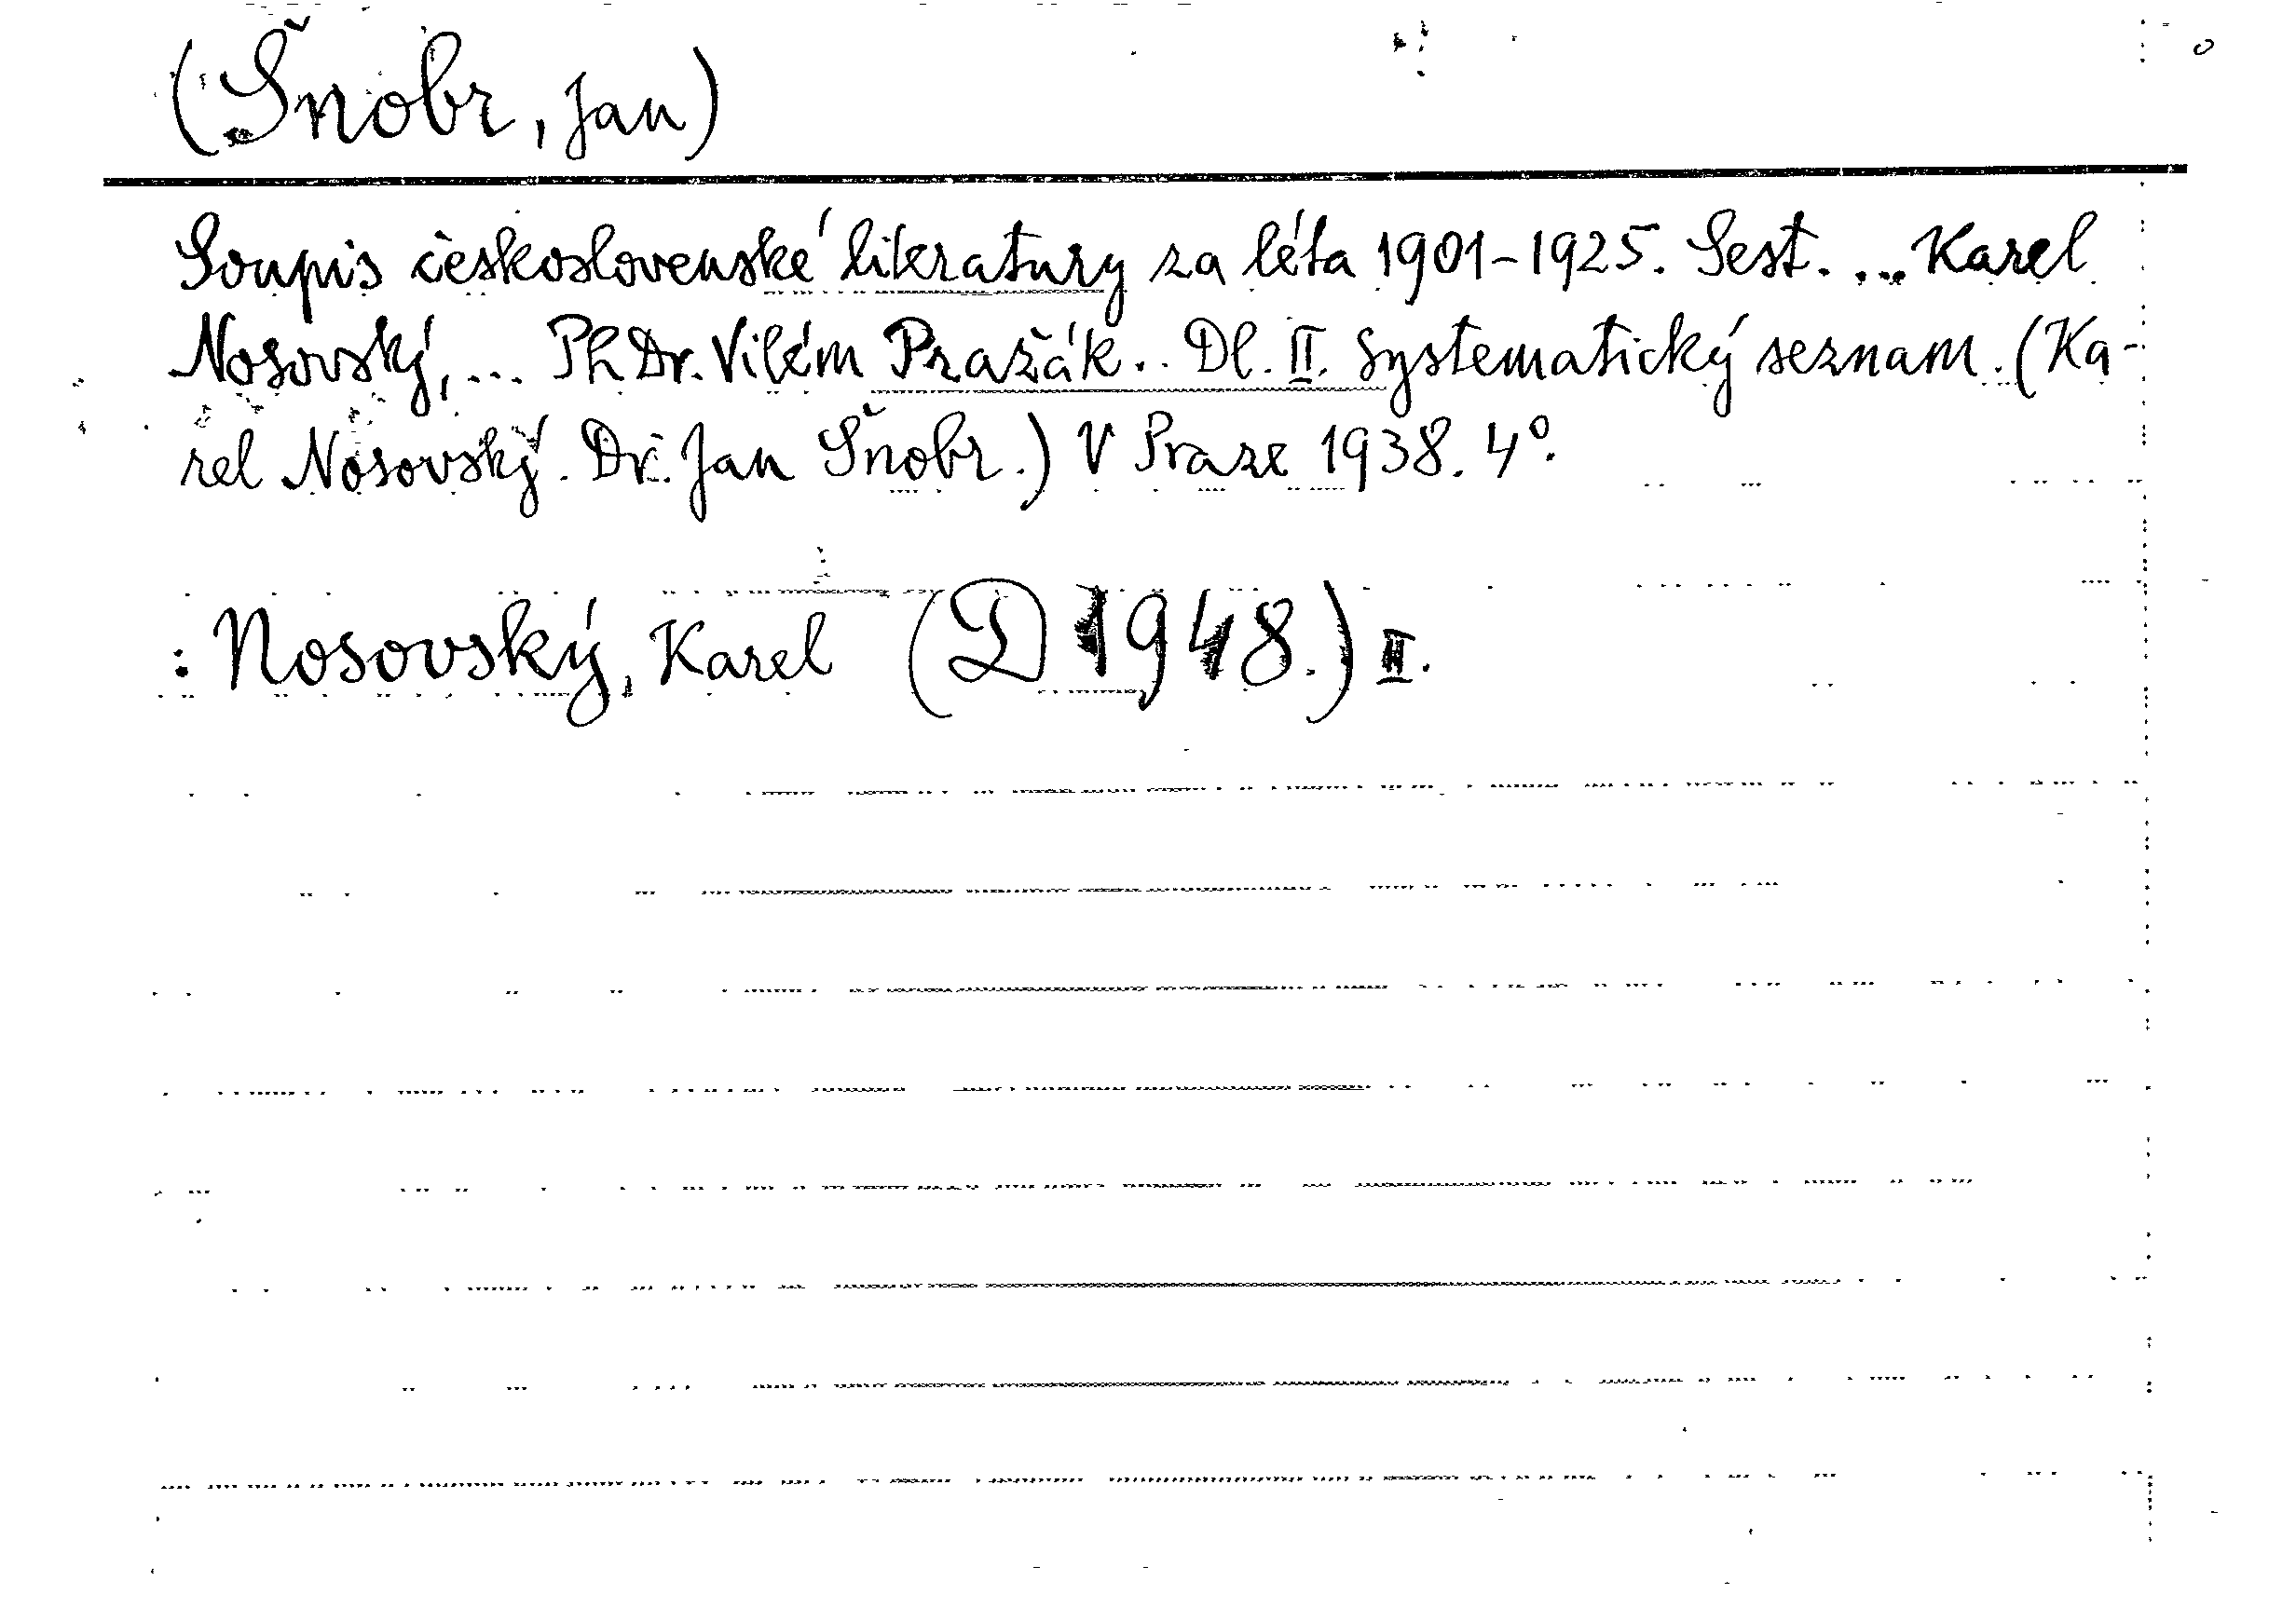 (Šnobr, Jan)
Soupis československé literatury za léta 1901-1925. Sest. ... Karel
Nosovský, ... PhDr. Vilém Pražák.. Dl. II. Systematický seznam. (Ka-
rel Nosovský. Dr. Jan Šnobr.) V Praze 1938. 4°.
: Nosovský, Karel (D 1948.) II.